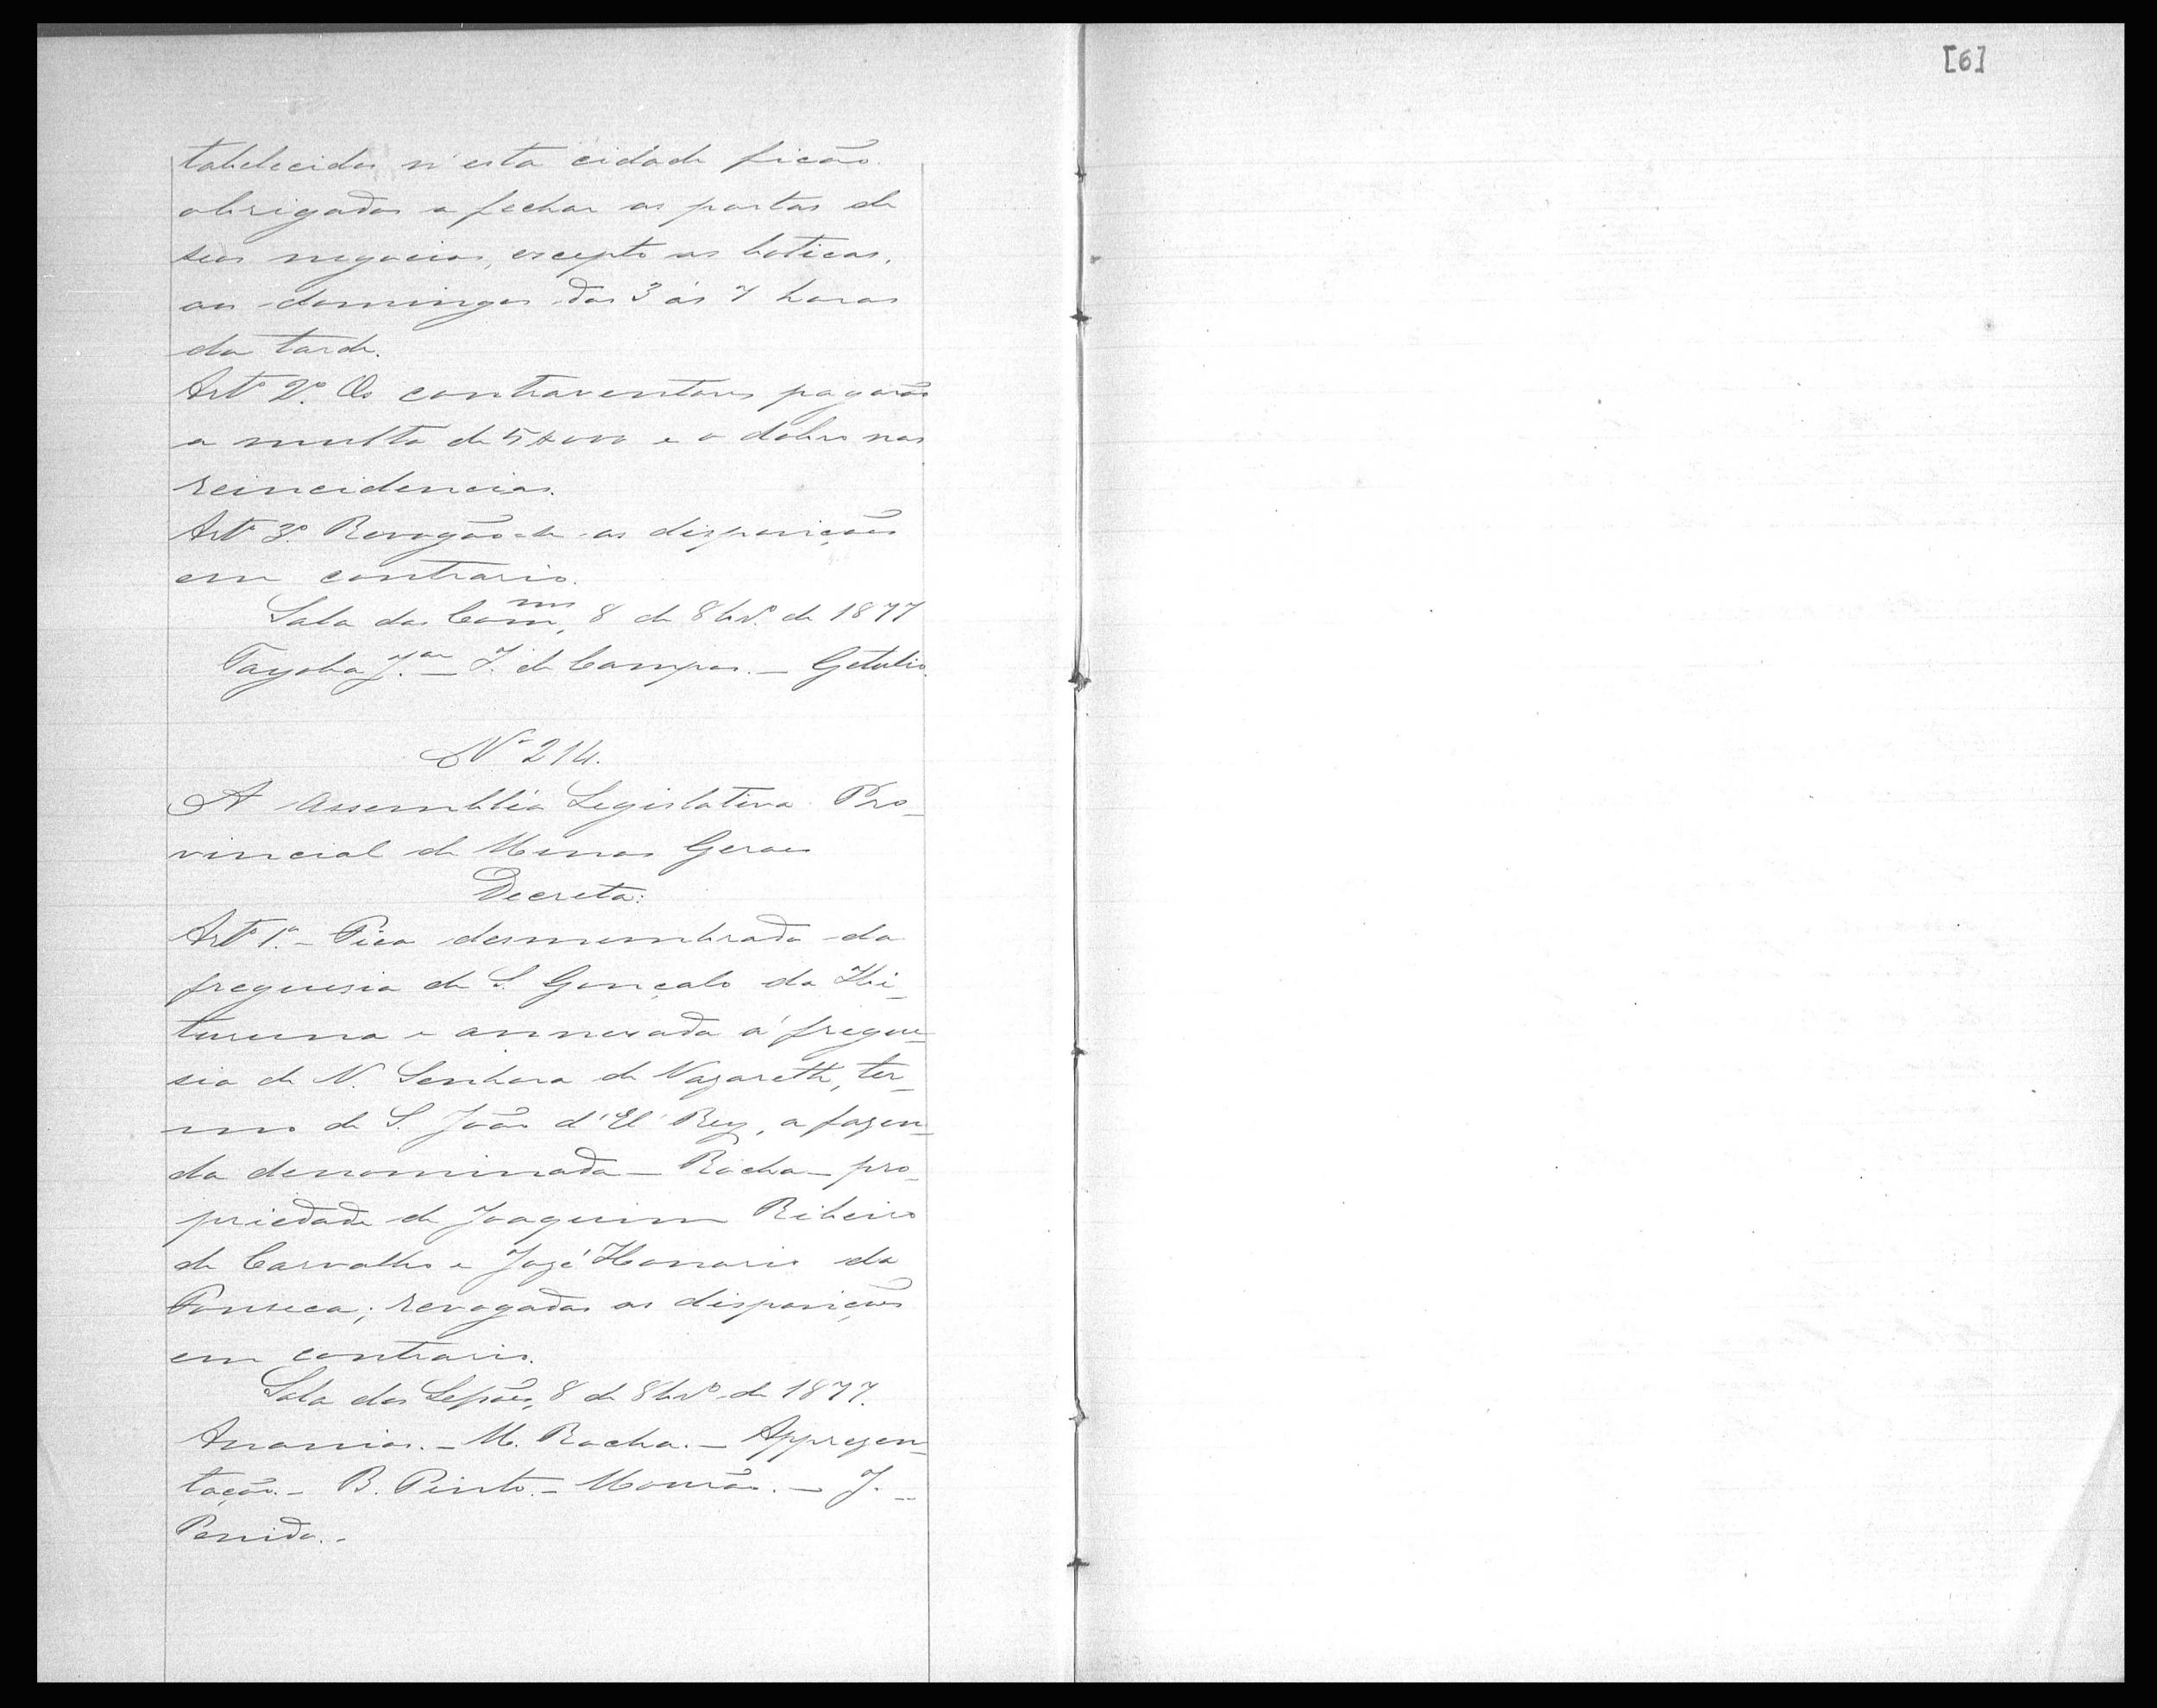 [6]
tabelecidos n'esta cidade ficão
obrigados a fechar as portas de
seos negocios, excepto as boticas,
aos domingos das 3 ás 7 horas
da tarde.
Artº 2º. Os contraventores pagarão
a multa de 5$000 e o dobro nas
reincidencias.
Artº 3º. Revogão-se as disposições
em contrario.
Sala das Comm.ões, 8 de 8brº. de 1877
Tayoba J.or – J. de Campos. – Getulio.
Nº 214.
A Assembléa Legislativa Pro-
vincial de Minas Geraes
Decreta:
Artº 1º. – Fica desmembrada da
freguesia de S. Gonçalo da Ibi-
turuna e annexada á fregue-
sia de N. Senhora de Nazareth, ter-
mo de S. João d'El Rey, a fazen-
da denominada – Rocha – pro-
priedade de Joaquim Ribeiro
de Carvalho e José Honorio da
Fonseca; revogadas as disposições
em contrario.
Sala das Sessões, 8 de 8brº de 1877.
Ananias. – M. Rocha. – Apprezen-
tação. – B. Pinto. – Mourão. – J. –
Penido. –